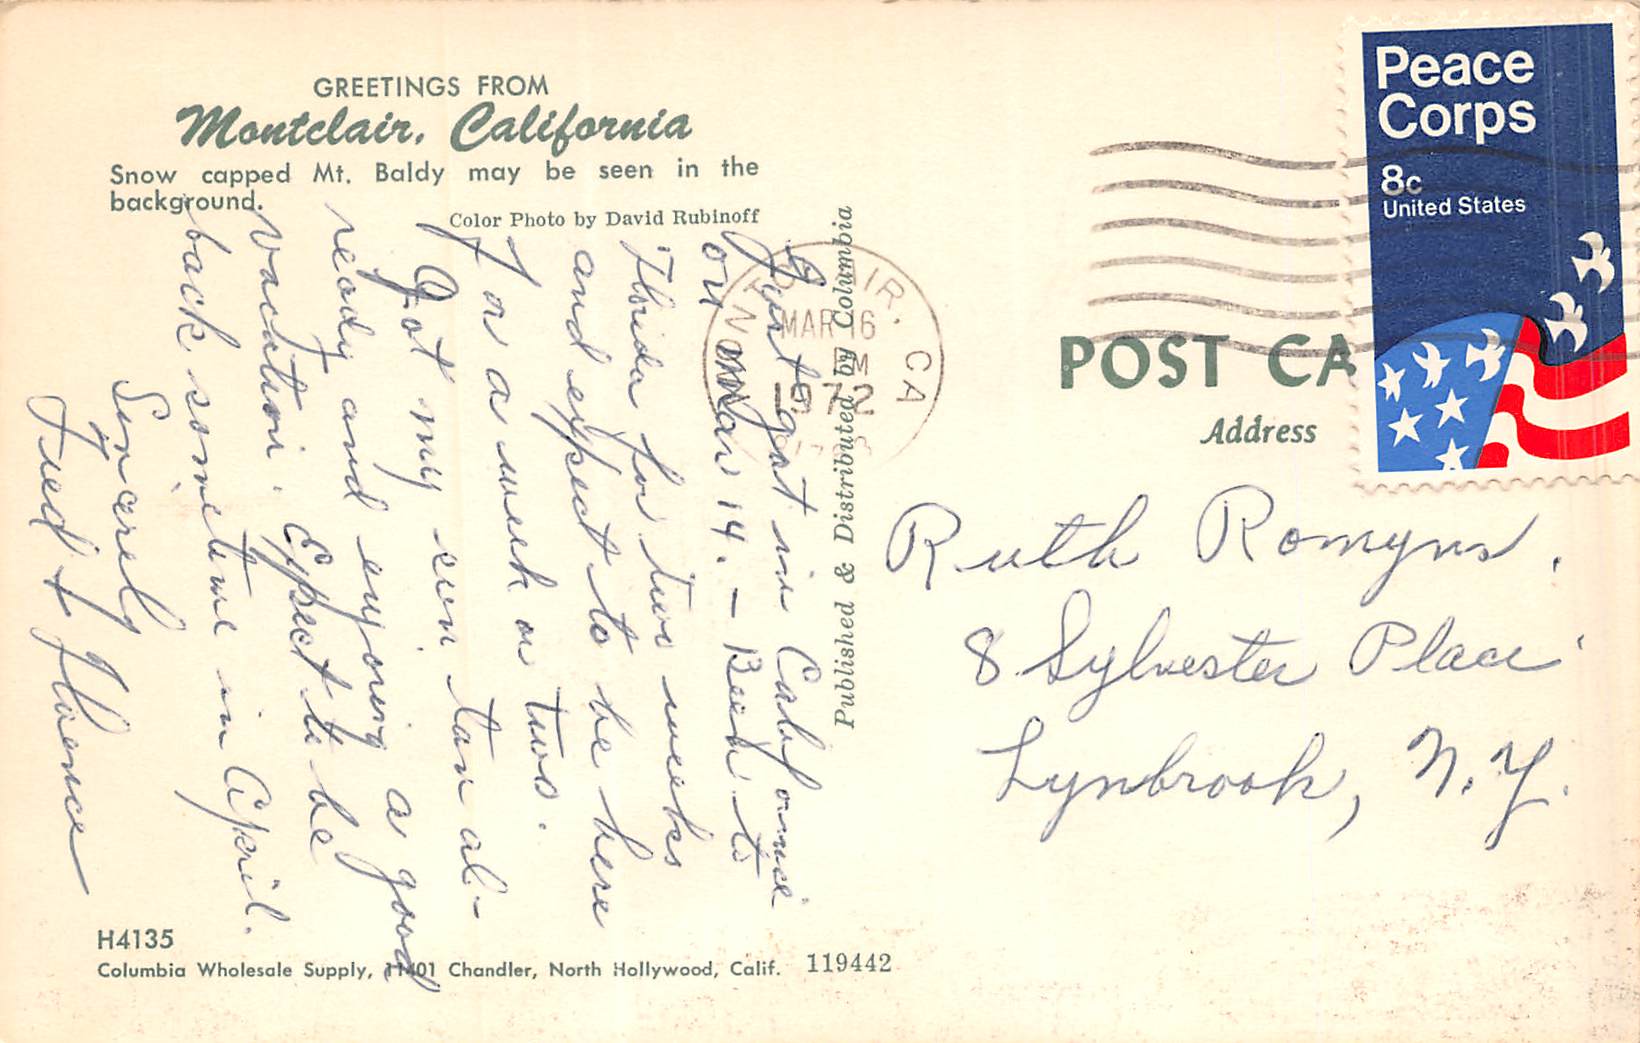 GREETINGS FROM
Montclair, California
Snow capped Mt. Baldy may be seen in the
background.
Color Photo by David Rubinoff
Just got in California
on Mar 14. - Been to
Florida for two weeks
and expect to be here
for a week or two.
Got my sun tan al-
ready and enjoying a good
vacation. Expect to be
back sometime in April.
Sincerely
Fred & Florence
H4135
Columbia Wholesale Supply, 11401 Chandler, North Hollywood, Calif.
119442
Published & Distributed by Columbia
CLAIR, CA
MAR 16
PM
1972
Peace
Corps
8c
United States
POST CA
Address
Ruth Romyns.
8 Sylvester Place
Lynbrook, N.Y.